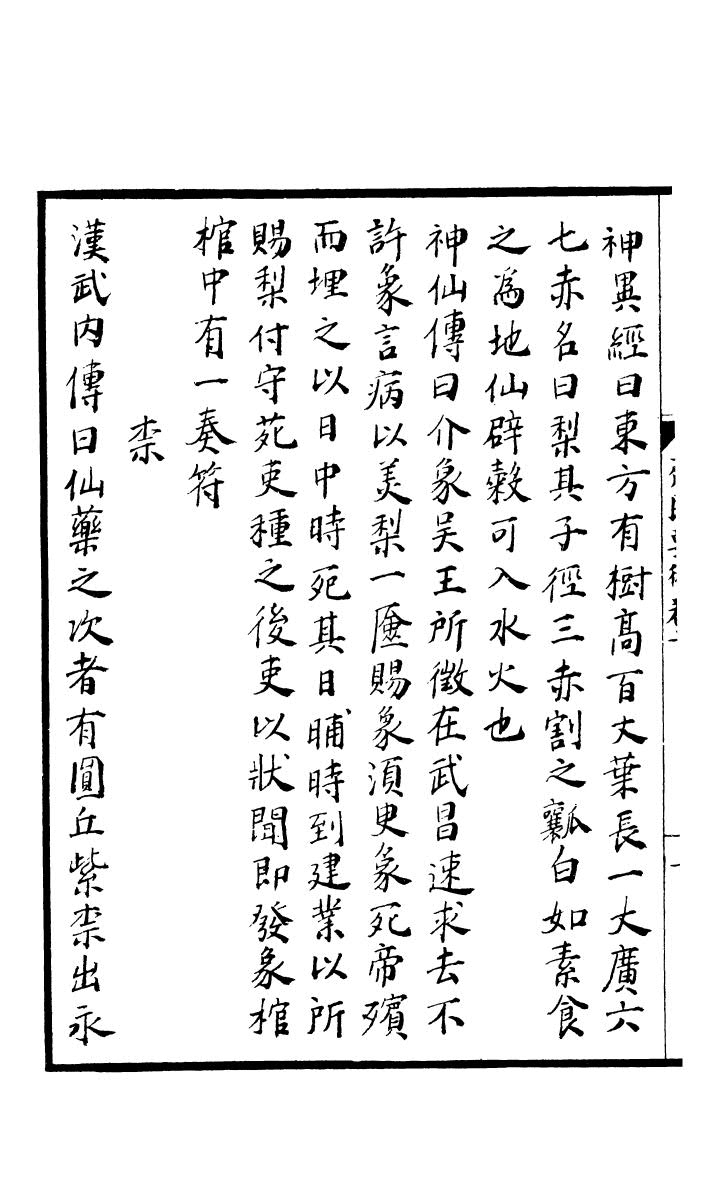 神異經曰東方有樹髙百丈葉長一丈廣六
七赤名曰梨其子徑三赤割之瓤白如素食
之爲地仙辟穀可入水火也
神仙傳曰介象吴王所徵在武昌速求去不
許象言病以美梨一匳賜象湏臾象死帝殯
而埋之以日中時死其日晡時到建業以所
賜梨付守苑吏種之後吏以狀聞即發象棺
棺中有一奏符
柰
漢武内傳曰仙藥之次者有圓丘紫柰出永